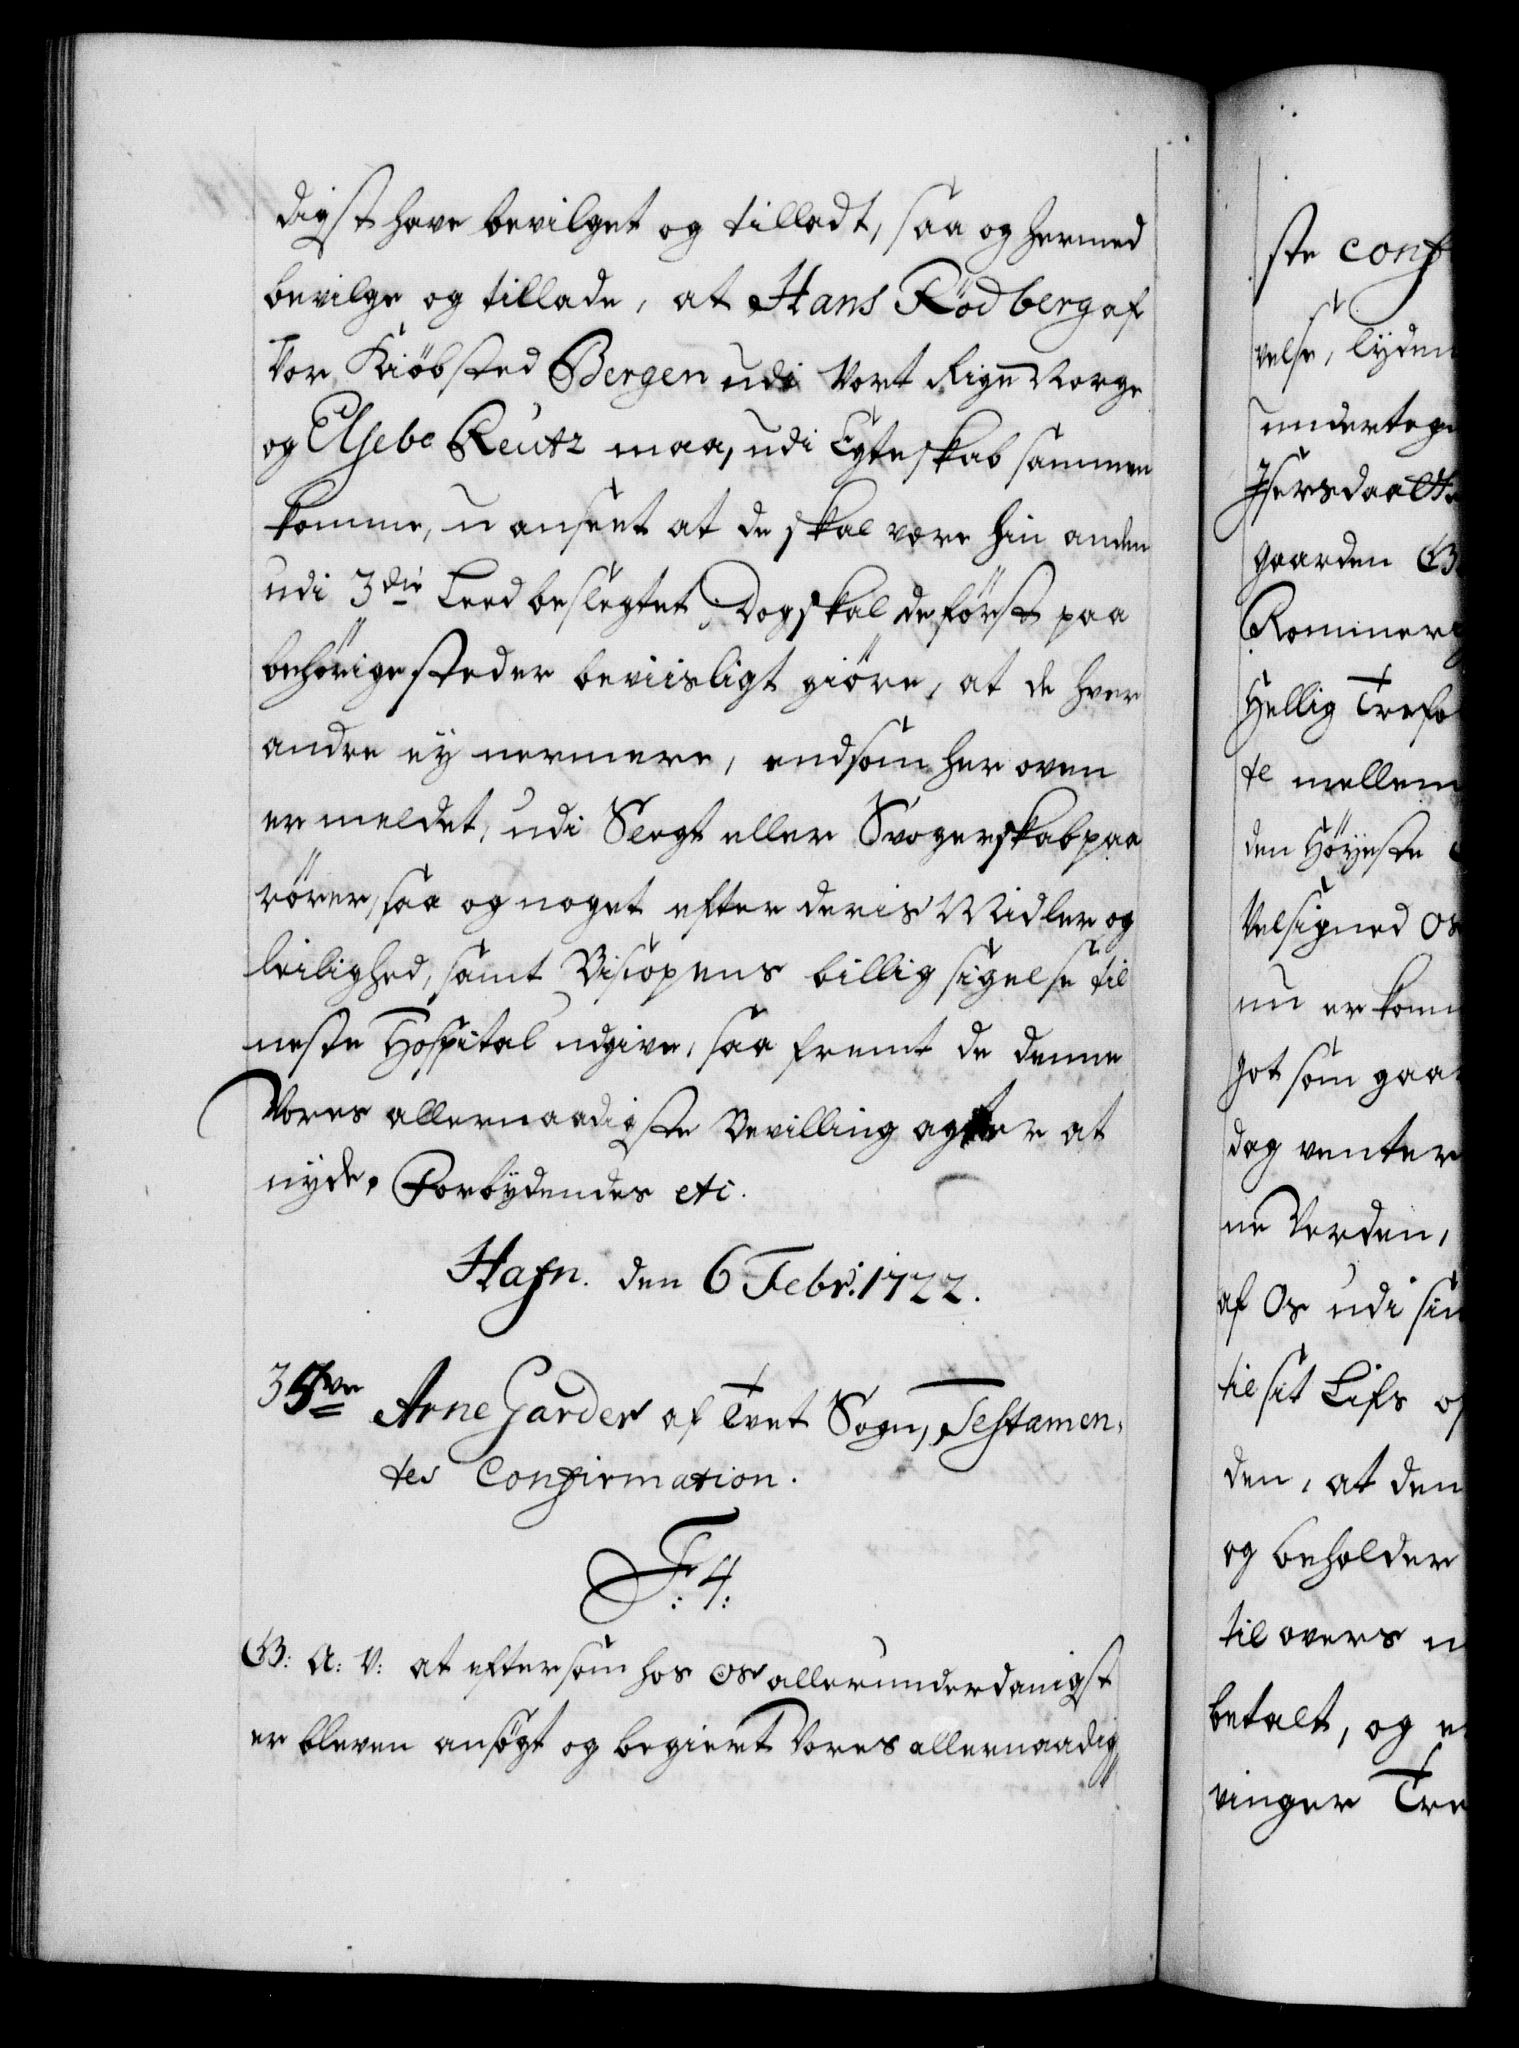 digst have bevilget og tilladt, saa og hermed
bevilge og tillade, at Hans Rödberg af
Vor Kiöbsted Bergen udi Vort Rige Norge
og Elsebe Reutz maa, udi Egteskab sammen
komme, uanseet at de skal være hin anden
udi 3die Leed beslegtet; Dog skal de först paa
behörige steder beviisligt giöre, at de hver
andre ey nermere, end som her oven
er meldet, udi Slegt eller Svogerskab paa
rörer, saa og noget efter deris Midler og
leilighed, samt Biscopens billig sigelse til
neste Hospital udgive, saa fremt de denne
Vores allernaadigste Bevilling agter at
nyde. Forbydendes etc.
Hafn. den 6 Febr: 1722.
35ve Arne Garder af Tvet Sogn, Testamen,
tes Confirmation.
F: 4:
G: A: V: at eftersom hos Os allerunderdanigst
er bleven ansögt og begiert Vores allernaadig
ste conf
velse, lyden
undertegn
Isersdaal
gaarden
Rommer
Hellig Trefo
te mellem
den Höyeste
Velsigned Os
nu er kom
got som gaa
dag venter
ne Verden,
af Os udi sin
til sit Lifs o
den, at den
og beholder
til overs
betalt, og
vinger Tre